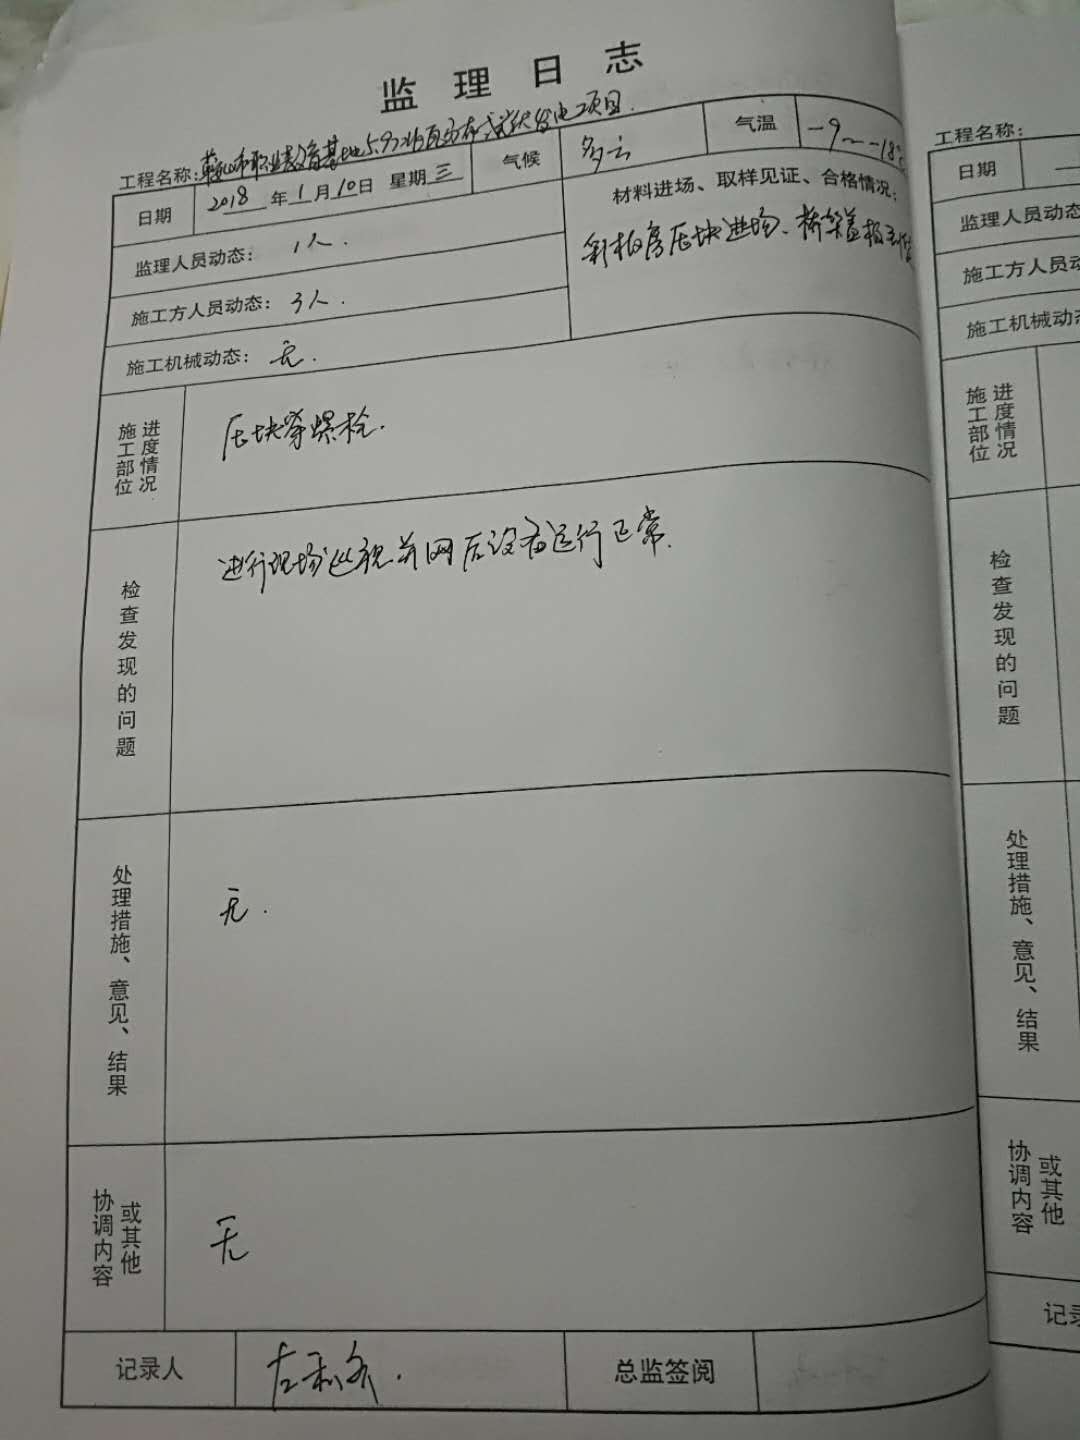 监理日志
工程名称: 鞍山市职业教育基地5.97兆瓦分布式光伏发电项目.
日期 2018年1月10日 星期三 气候 多云 气温 -9~-18℃
监理人员动态: 1人.
材料进场、取样见证、合格情况:
彩板房压块进场、桥架盖板
施工方人员动态: 3人.
施工机械动态: 无.
施工部位 进度情况 压块等螺栓.
检查发现的问题 进行现场巡视并网后设备运行正常.
处理措施、意见、结果 无.
协调内容 或其他 无
记录人 总监签阅
工程名称:
日期
监理人员动态
施工方人员动
施工机械动
施工部位 进度情况
检查发现的问题
处理措施、意见、结果
协调内容 或其他
记